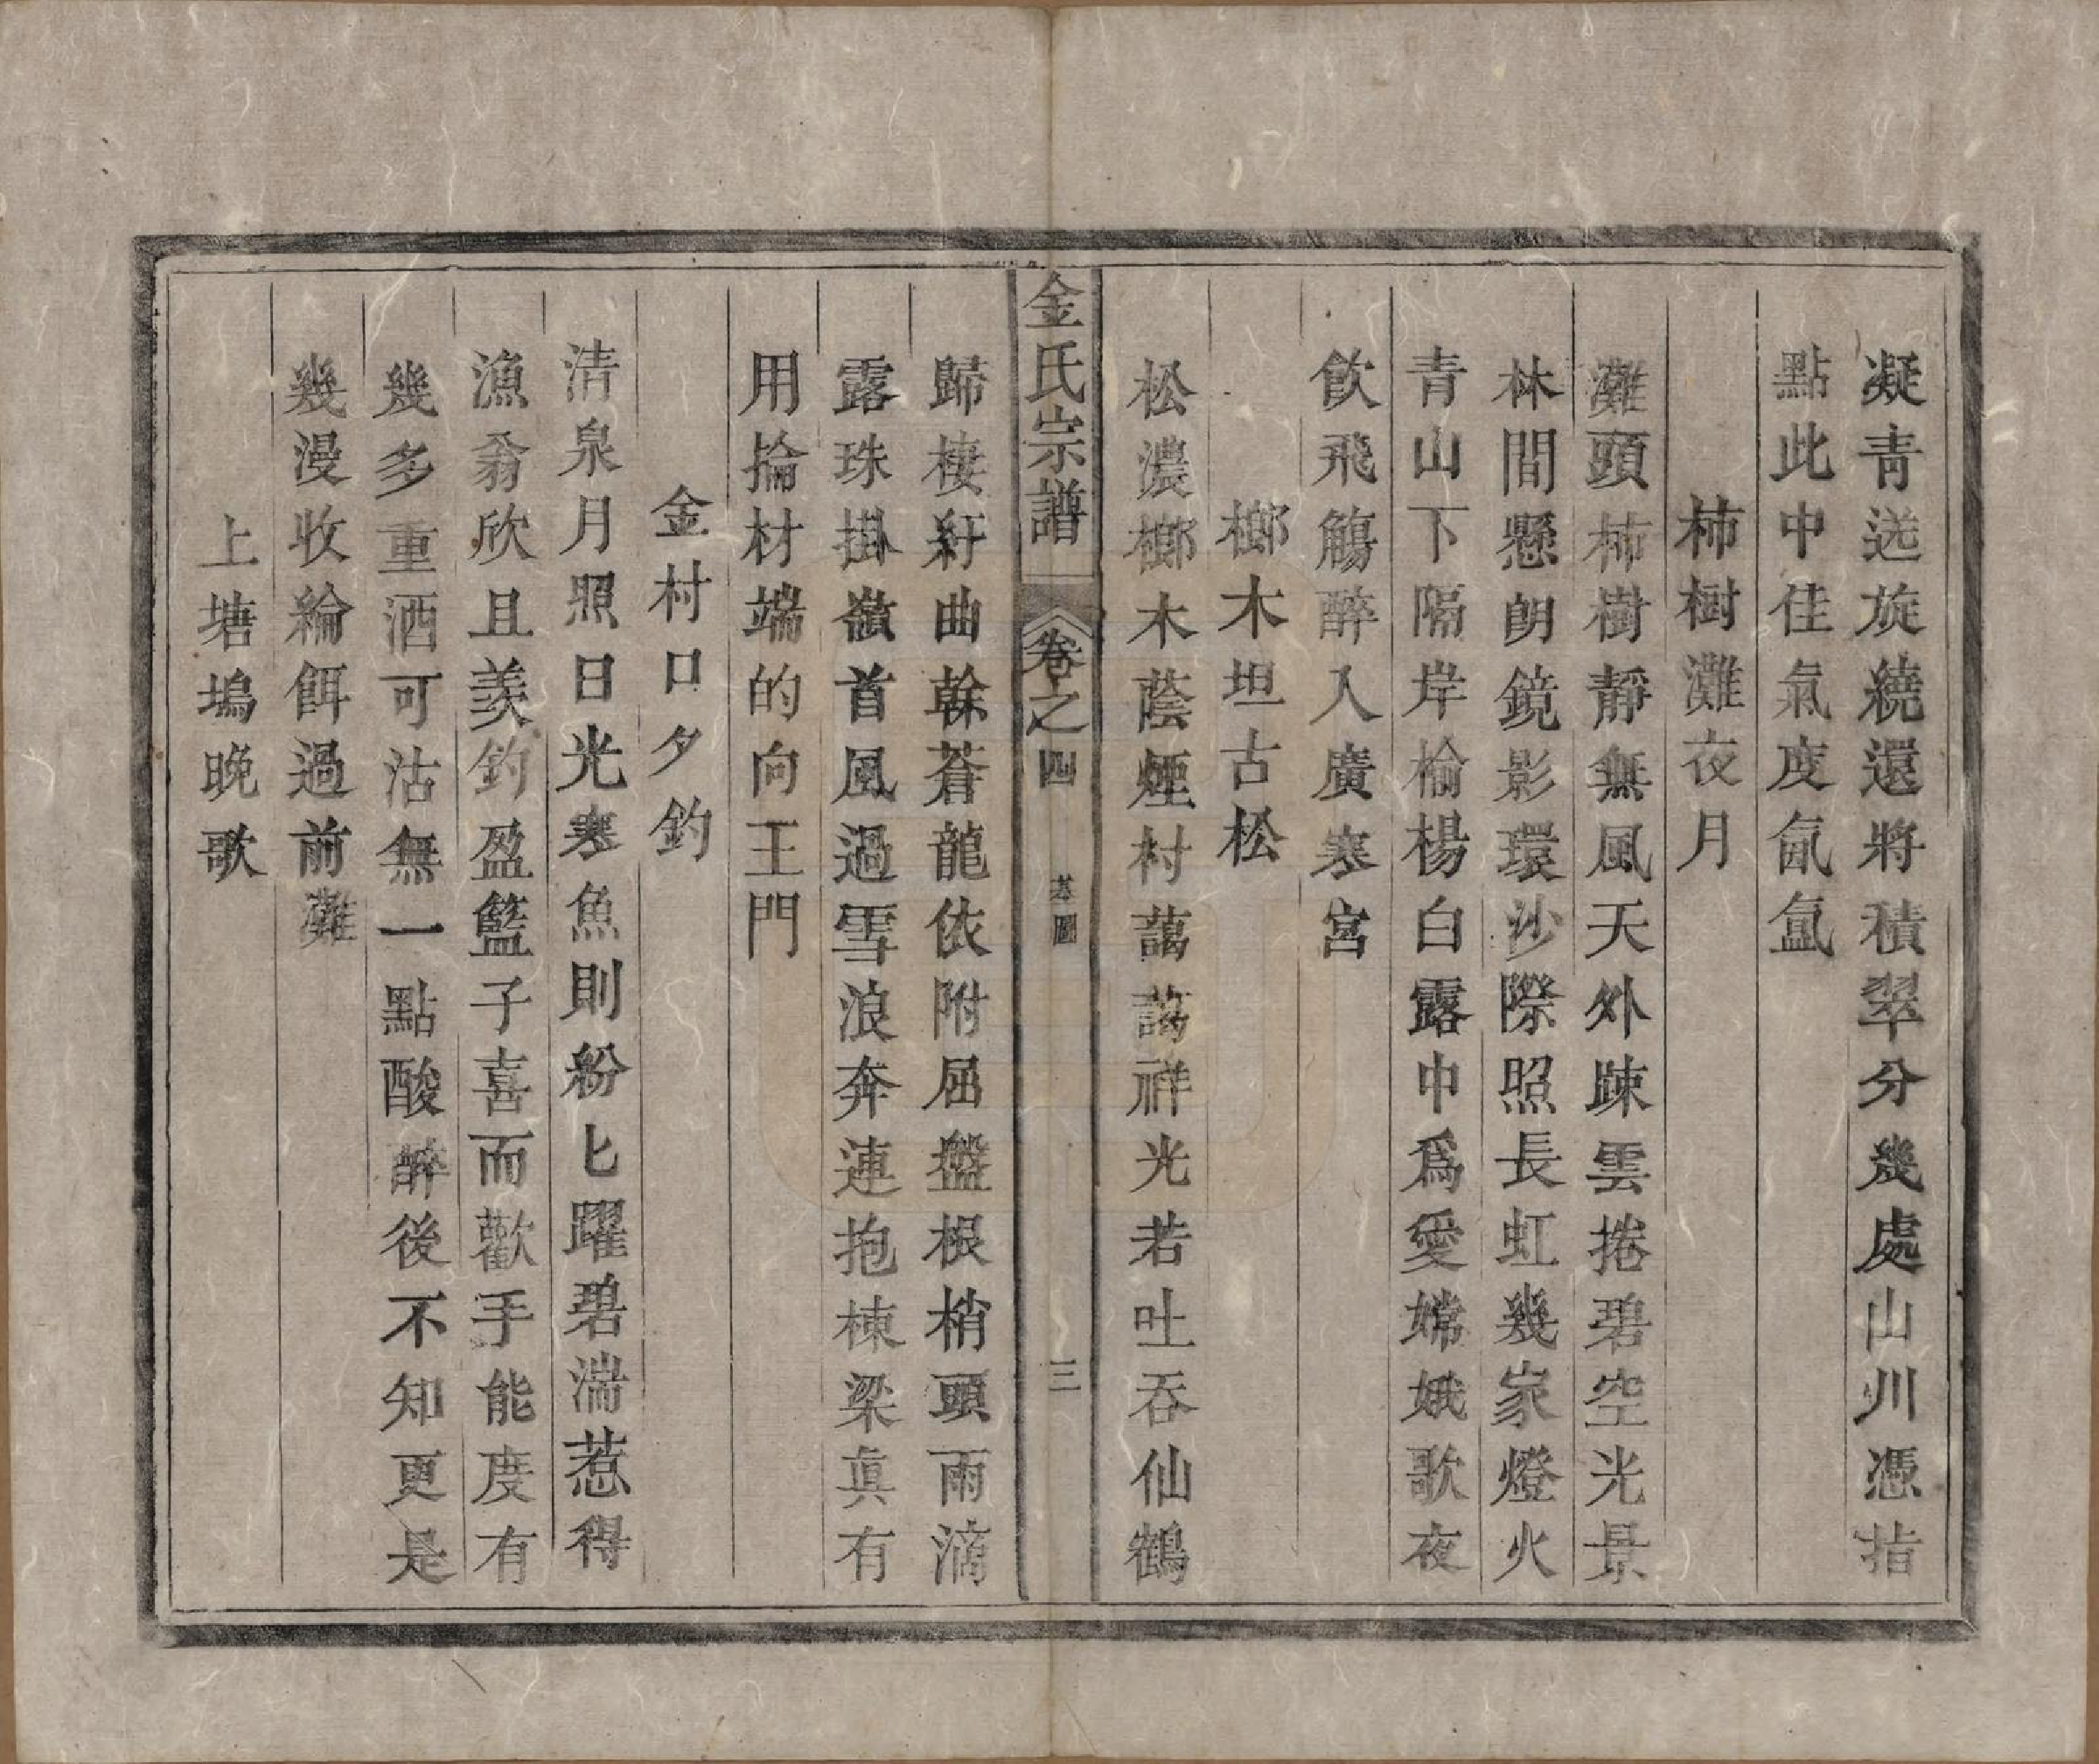 凝青送旋繞還將積翠分幾處山川憑指
點此中佳氣度氤氳
柿樹灘夜月
灘頭柿樹靜無風天外疎雲捲碧空光景
林間懸朗鏡影環沙際照長虹幾家燈火
青山下隔岸榆楊白露中為愛嫦娥歌夜
飲飛觴醉入廣寒宮
榔木坦古松
松濃榔木蔭煙村藹藹祥光若吐吞仙鶴
金氏宗譜 卷之四 基圖 三
歸棲紆曲榦蒼龍依附屈盤根梢頭雨滴
露珠掛嶺首風過雪浪奔連抱棟梁真有
用掄材端的向王門
金村口夕釣
清泉月照日光寒魚則紛匕躍碧湍惹得
漁翁欣且羨釣盈籃子喜而歡手能度有
幾多重酒可沽無一點酸醉後不知更是
幾漫收綸餌過前灘
上塘塢晚歌